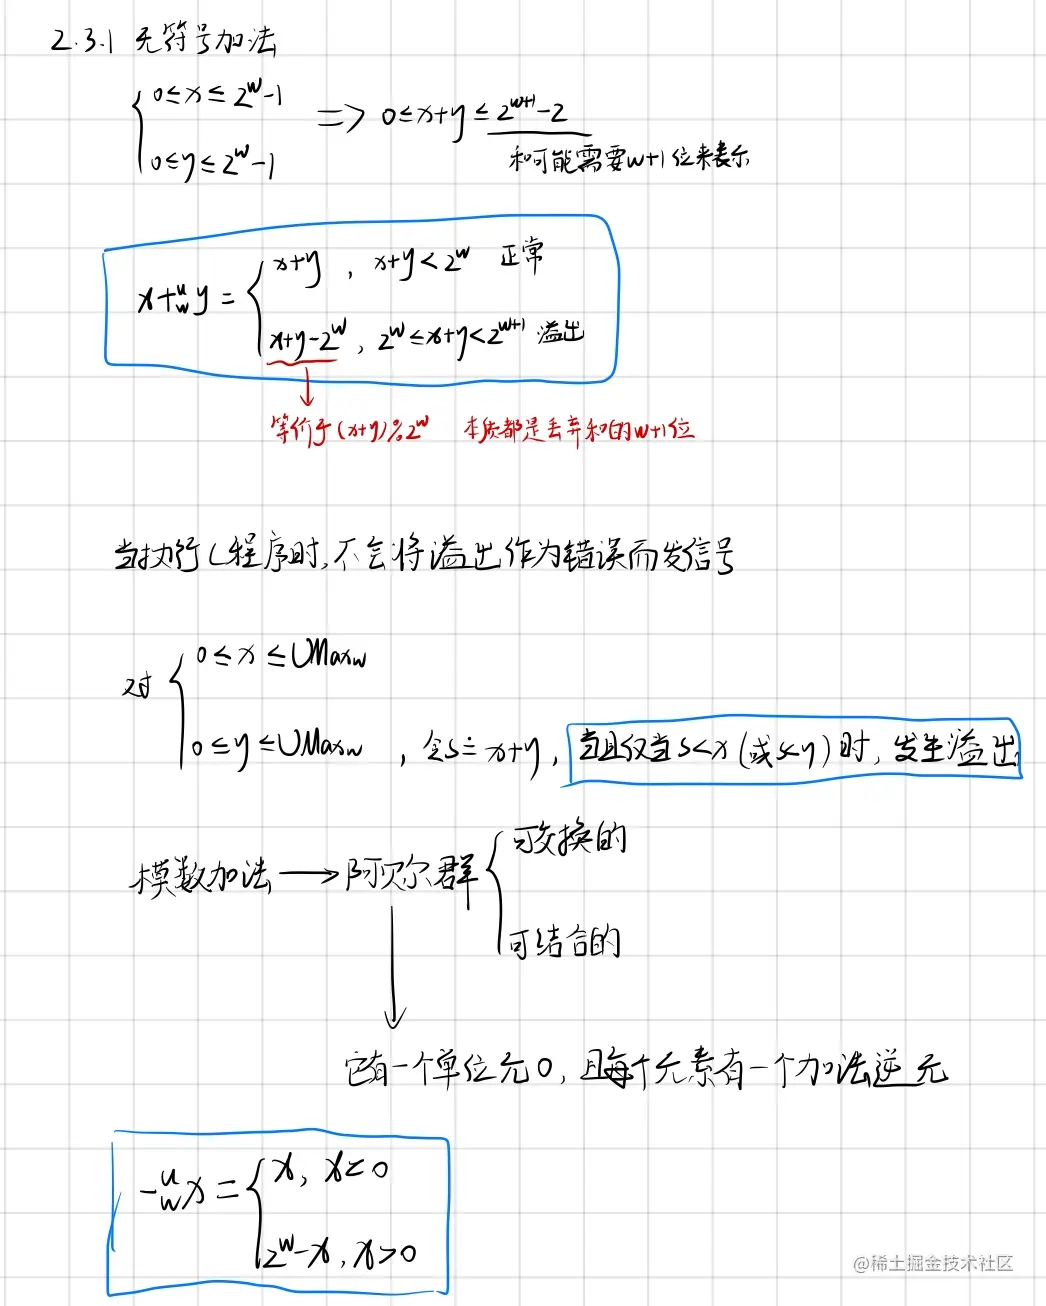 2.3.1 无符号加法
0≤x≤2^w-1
0≤y≤2^w-1
=> 0≤x+y≤2^{w+1}-2
和可能需要w+1位来表示
x+^u_w y = { x+y , x+y<2^w 正常
x+y-2^w , 2^w≤x+y<2^{w+1} 溢出
等价于(x+y)%2^w 本质都是丢弃和的w+1位
当执行C程序时,不会将溢出作为错误而发信号
对 { 0≤x≤UMax_w
0≤y≤UMax_w , 令s≐x+y, 当且仅当s<x(或s<y)时,发生溢出
模数加法 → 阿贝尔群 { 可交换的
可结合的
它有一个单位元0,且每个元素有一个加法逆元
-^u_w x = { x, x=0
2^w-x, x>0
@稀土掘金技术社区